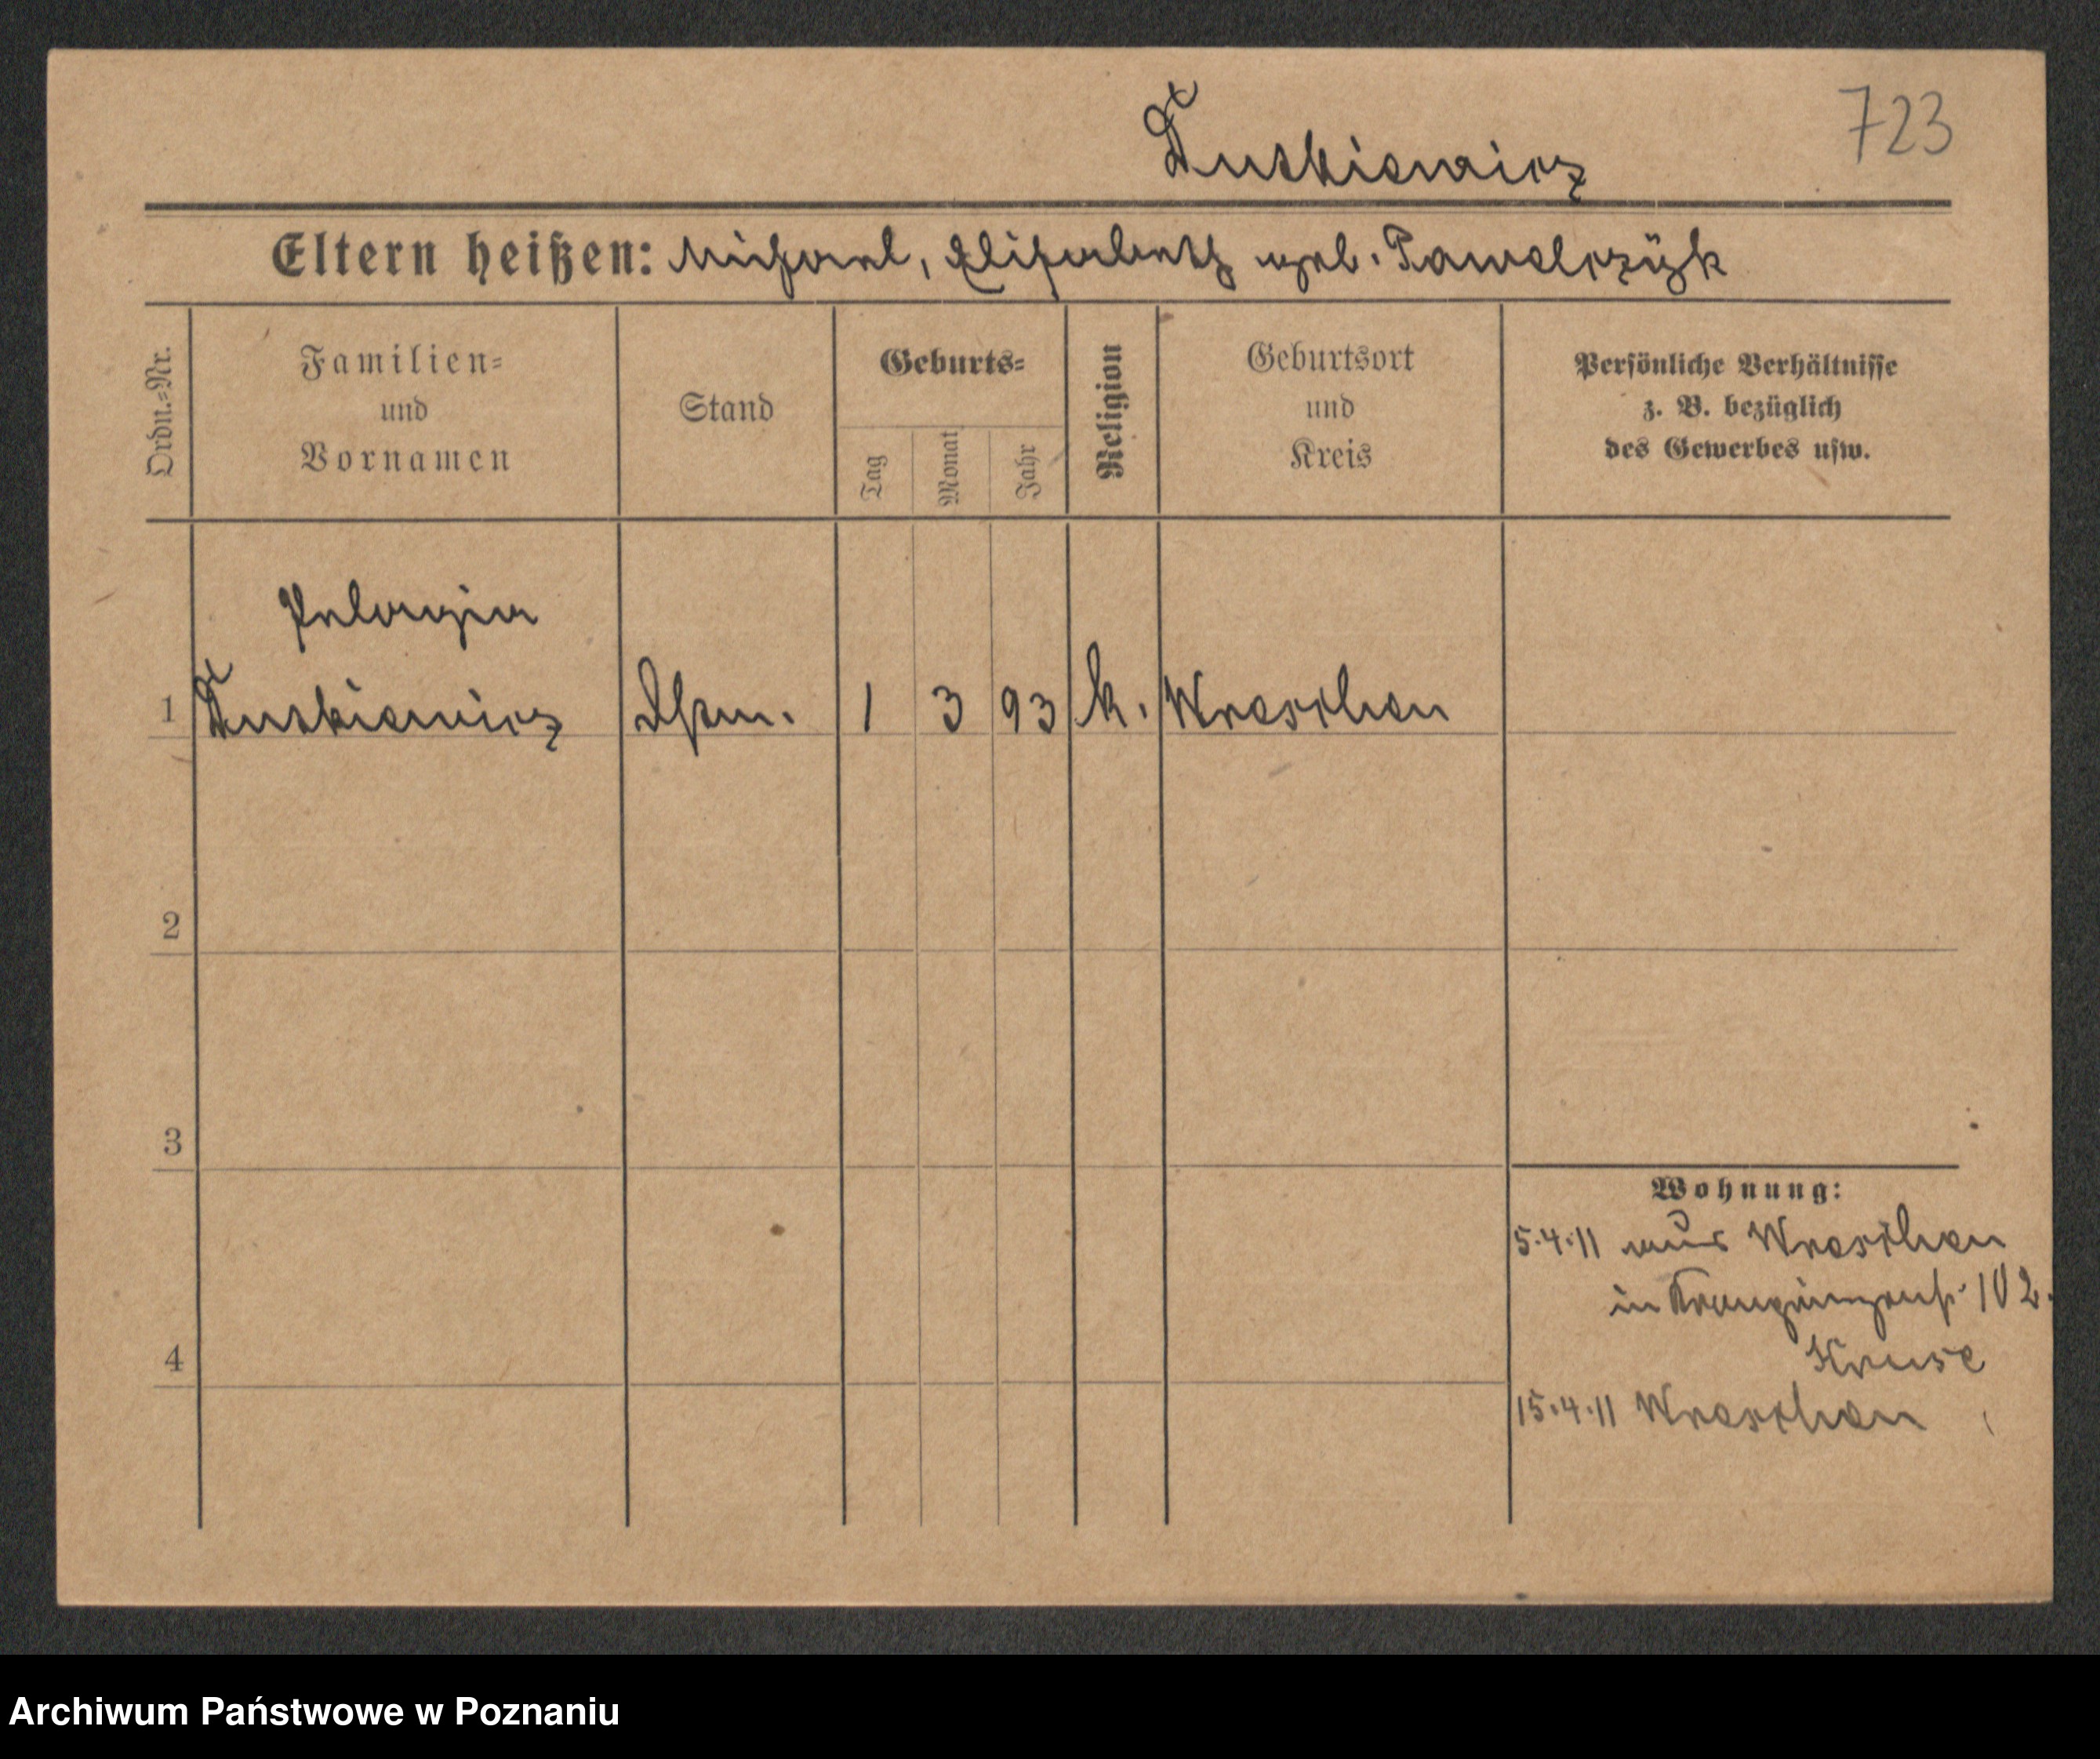 723
Dutkiewicz
Eltern heißen: Michael, Elisabeth geb. Pawelczÿk
Ordn.=Nr.
Familien=
und
Vornamen
Stand
Geburts=
Tag
Monat
Jahr
Religion
Geburtsort
und
Kreis
Persönliche Verhältnisse
z. B. bezüglich
des Gewerbes usw.
Pelagia
1 Dutkiewicz 1 3 93 k. Wreschen
2
3
4
Wohnung:
5.4.11 aus Wreschen
in 102.
Kruse
15.4.11 Wreschen
Archiwum Państwowe w Poznaniu